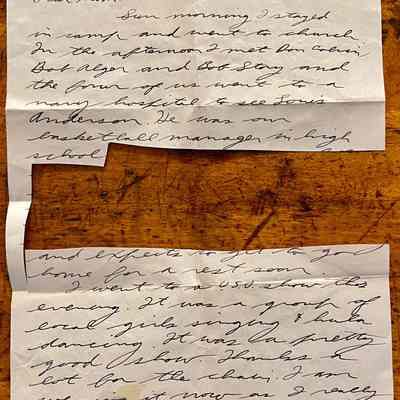 Sun morning I stayed
in camp and went to church
In the afternoon I met Don
Bob Alger and Bob Story and
the four of us went to a
navy hospital to see Louis
Anderson. He was our
basketball manager in high
school
and expects to get to go
home for a rest soon.
I went to a USO show this
evening. It was a group of
local girls singing & hula
dancing. It was a pretty
good show. Thanks a
lot for the chain. I am
it now as I really